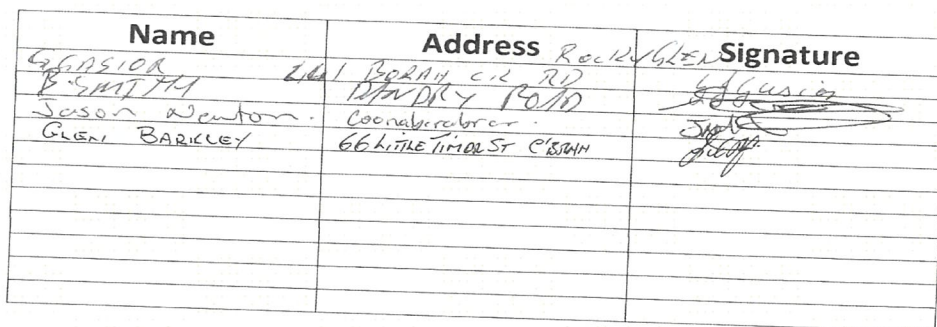 Name Address Signature
G GASIOR 241 BORAH CK RD ROCKY GLEN G Gasior
B. SMITH DANDRY ROAD
Jason Newton. Coonabarabran.
GLEN BARKLEY 66 LITTLE TIMOR ST C'BRAN